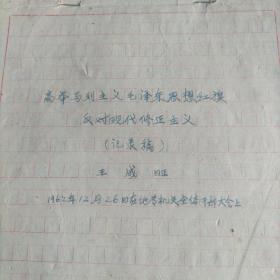 高举马列主义毛泽东思想红旗
反对现代修正主义
(记录稿)
王成旺
1962年12月26日在地专机关全体干部大会上